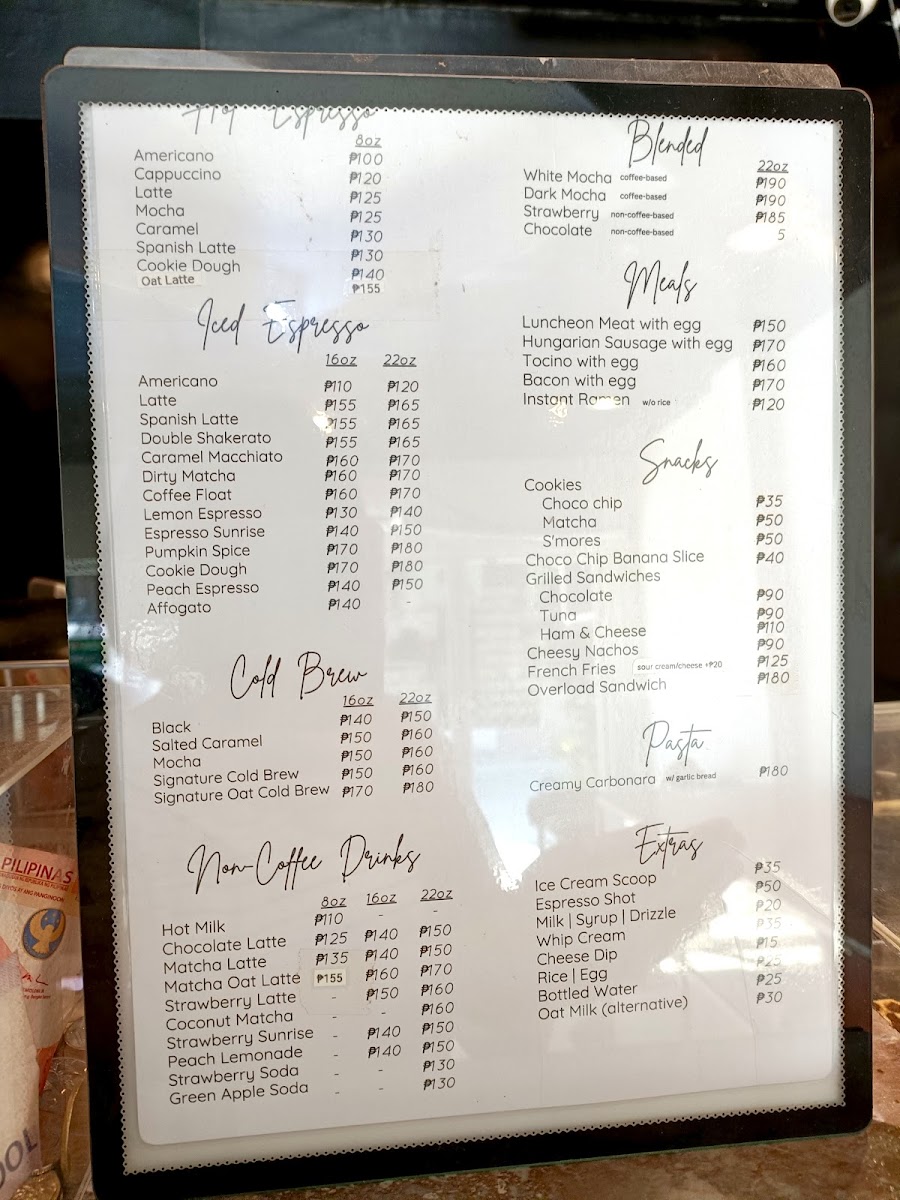 Hot Espresso
8oz
Americano ₱100
Cappuccino ₱120
Latte ₱125
Mocha ₱125
Caramel ₱130
Spanish Latte ₱130
Cookie Dough ₱140
Oat Latte ₱155
Iced Espresso
16oz 22oz
Americano ₱110 ₱120
Latte ₱155 ₱165
Spanish Latte ₱155 ₱165
Double Shakerato ₱155 ₱165
Caramel Macchiato ₱160 ₱170
Dirty Matcha ₱160 ₱170
Coffee Float ₱160 ₱170
Lemon Espresso ₱130 ₱140
Espresso Sunrise ₱140 ₱150
Pumpkin Spice ₱170 ₱180
Cookie Dough ₱170 ₱180
Peach Espresso ₱140 ₱150
Affogato ₱140 -
Cold Brew
16oz 22oz
Black ₱140 ₱150
Salted Caramel ₱150 ₱160
Mocha ₱150 ₱160
Signature Cold Brew ₱150 ₱160
Signature Oat Cold Brew ₱170 ₱180
Non-Coffee Drinks
8oz 16oz 22oz
Hot Milk ₱110 - -
Chocolate Latte ₱125 ₱140 ₱150
Matcha Latte ₱135 ₱140 ₱150
Matcha Oat Latte ₱155 ₱160 ₱170
Strawberry Latte - ₱150 ₱160
Coconut Matcha - - ₱160
Strawberry Sunrise - ₱140 ₱150
Peach Lemonade - ₱140 ₱150
Strawberry Soda - - ₱130
Green Apple Soda - - ₱130
Blended
22oz
White Mocha coffee-based ₱190
Dark Mocha coffee-based ₱190
Strawberry non-coffee-based ₱185
Chocolate non-coffee-based 5
Meals
Luncheon Meat with egg ₱150
Hungarian Sausage with egg ₱170
Tocino with egg ₱160
Bacon with egg ₱170
Instant Ramen w/o rice ₱120
Snacks
Cookies
Choco chip ₱35
Matcha ₱50
S'mores ₱50
Choco Chip Banana Slice ₱40
Grilled Sandwiches
Chocolate ₱90
Tuna ₱90
Ham & Cheese ₱110
Cheesy Nachos ₱90
French Fries sour cream/cheese +₱20 ₱125
Overload Sandwich ₱180
Pasta
Creamy Carbonara w/ garlic bread ₱180
Extras
Ice Cream Scoop ₱35
Espresso Shot ₱50
Milk | Syrup | Drizzle ₱20
Whip Cream ₱35
Cheese Dip ₱15
Rice | Egg ₱25
Bottled Water ₱25
Oat Milk (alternative) ₱30
PILIPINAS